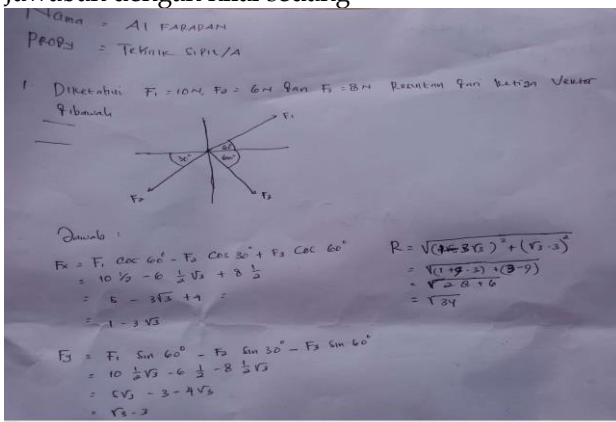 jawaban dengan nilai sedang
Nama = AL FARADAN
PROPY = TEKNIK SIPIL/A
1. Diketahui F₁ = 10N, F₂ = 6N dan F₃ = 8N Resultan dari ketiga Vektor
dibawah
F₁
30° 60°
60°
F₂ F₃
Jawab :
Fx = F₁ Cos 60° - F₂ Cos 30° + F₃ Cos 60°
= 10 ½ - 6 ½√3 + 8 ½
= 5 - 3√3 + 4 =
= 1 - 3√3
Fy = F₁ Sin 60° - F₂ Sin 30° - F₃ Sin 60°
= 10 ½√3 - 6 ½ - 8 ½√3
= 5√3 - 3 - 4√3
= √3 - 3
R = √(1-3√3)² + (√3-3)²
= √(1+9·3) + (3-9)
= √28+6
= √34